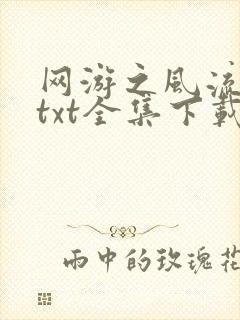 网游之风流
txt全集下载
雨中的玫瑰花